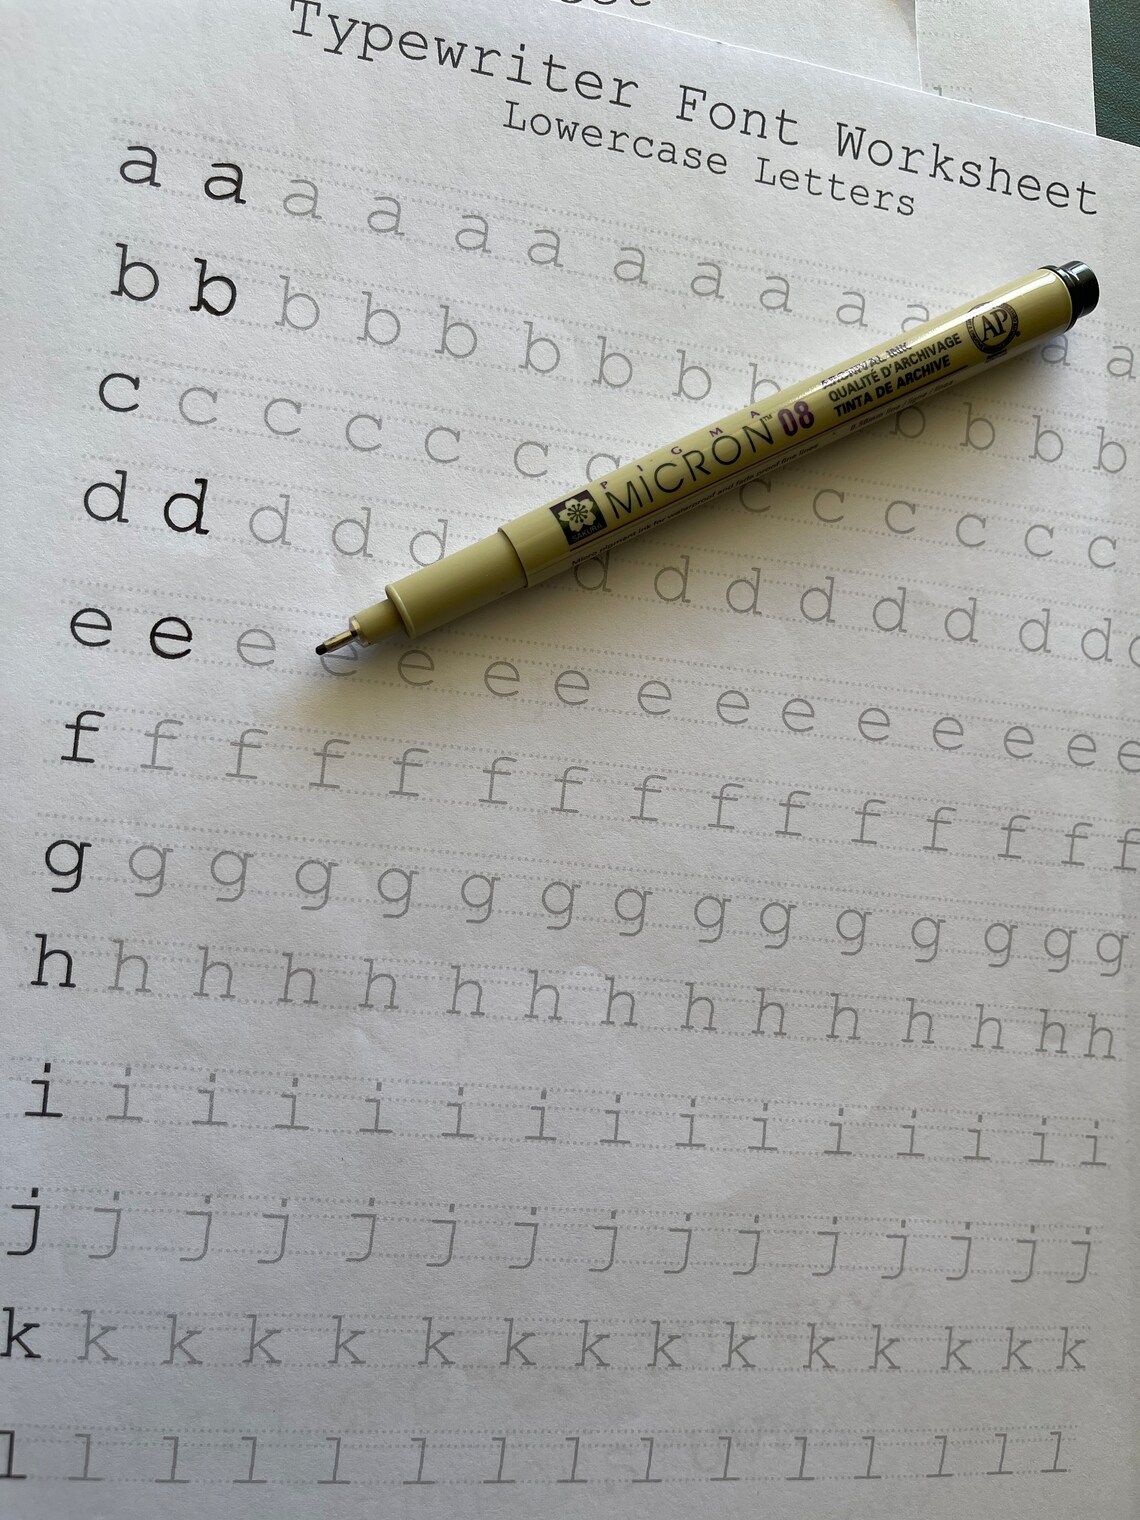 Typewriter Font Worksheet
Lowercase Letters
a a a a a a a a a a a a a
b b b b b b b b b b b b b
c c c c c c c c c c c c c
d d d d d d d d d d d d d d
e e e e e e e e e e e e e e e
f f f f f f f f f f f f f f f
g g g g g g g g g g g g g g g
h h h h h h h h h h h h h h h
i i i i i i i i i i i i i i i
j j j j j j j j j j j j j j j
k k k k k k k k k k k k k k k
l l l l l l l l l l l l l l l
SAKURA
PIGMA
MICRON™ 08
ARCHIVAL INK
QUALITÉ D'ARCHIVAGE
TINTA DE ARCHIVE
AP